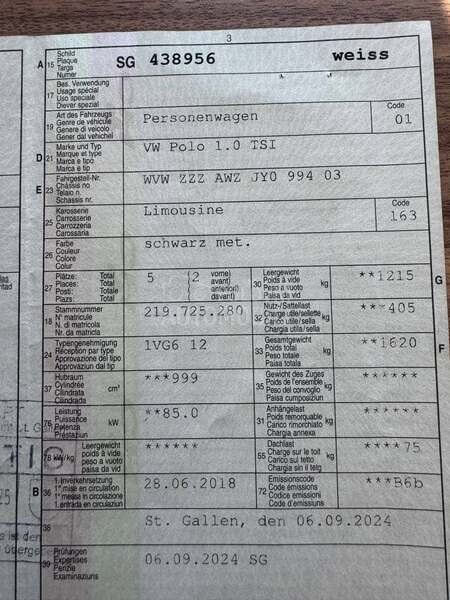 3
A 15 Schild Plaque Targa Numer SG 438956 weiss
17 Bes. Verwendung Usage spécial Uso speciale Diever spezial
19 Art des Fahrzeugs Genre de véhicule Genere di veicolo Gener dal vehichel Personenwagen Code 01
D 21 Marke und Typ Marque et type Marca e tipo Marca e tip VW Polo 1.0 TSI
E 23 Fahrgestell-Nr. Châssis no Telaio n. Schassis nr. WVW ZZZ AWZ JY0 994 03
25 Karosserie Carrosserie Carrozzeria Carossaria Limousine Code 163
26 Farbe Couleur Colore Colur schwarz met.
27 Plätze: Total Places: Total Posti: Totale Plazs: Total 5 (2 vorne) avant) anteriori) davant)
30 Leergewicht Poids à vide Peso a vuoto Paisa da vid kg **1215 G
18 Stammnummer N° matricule N. di matricola Nr. da matricla 219.725.280
32 Nutz-/Sattellast Charge utile/sellette Carico utile/sella Chargia utila/sella kg ***405
24 Typengenehmigung Réception par type Approvazione del tipo Approvaziun dal tip 1VG6 12
33 Gesamtgewicht Poids total Peso totale Paisa totala kg **1620 F
37 Hubraum Cylindrée Cilindrata Cilindrada cm³ ***999
35 Gewicht des Zuges Poids de l'ensemble Peso del convoglio Paisa cumposiziun kg ******
76 Leistung Puissance Potenza Prestaziun kW **85.0
31 Anhängelast Poids remorquable Carico rimorchiato Chargia annexa kg ******
78 kW/kg Leergewicht poids à vide peso a vuoto paisa da vid ******
55 Dachlast Charge sur le toit Carico sul tetto Chargia sin il tetg kg ****75
B 36 1.Inverkehrsetzung 1re mise en circulation 1a messa in circolazione 1.entrada en circulaziun 28.06.2018
72 Emissionscode Code émissions Codice emissioni Code d'emissiuns ***B6b
38 St. Gallen, den 06.09.2024
39 Prüfungen Expertises Perizie Examinaziuns 06.09.2024 SG